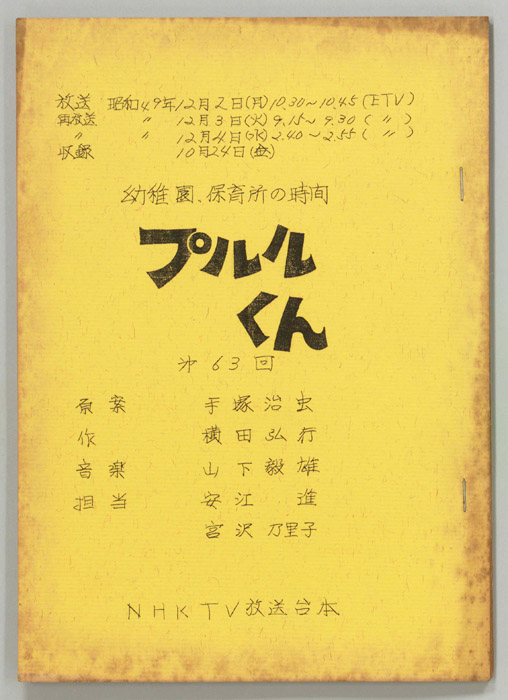 放送 昭和49年12月2日(月)10.30～10.45(ETV)
再放送 〃 12月3日(火)9.15～9.30(〃)
〃 〃 12月4日(水)2.40～2.55(〃)
収録 10月24日(金)
幼稚園、保育所の時間
プルル
くん
第63回
原案 手塚治虫
作 横田弘行
音楽 山下毅雄
担当 安江 進
宮沢乃里子
NHKTV放送台本